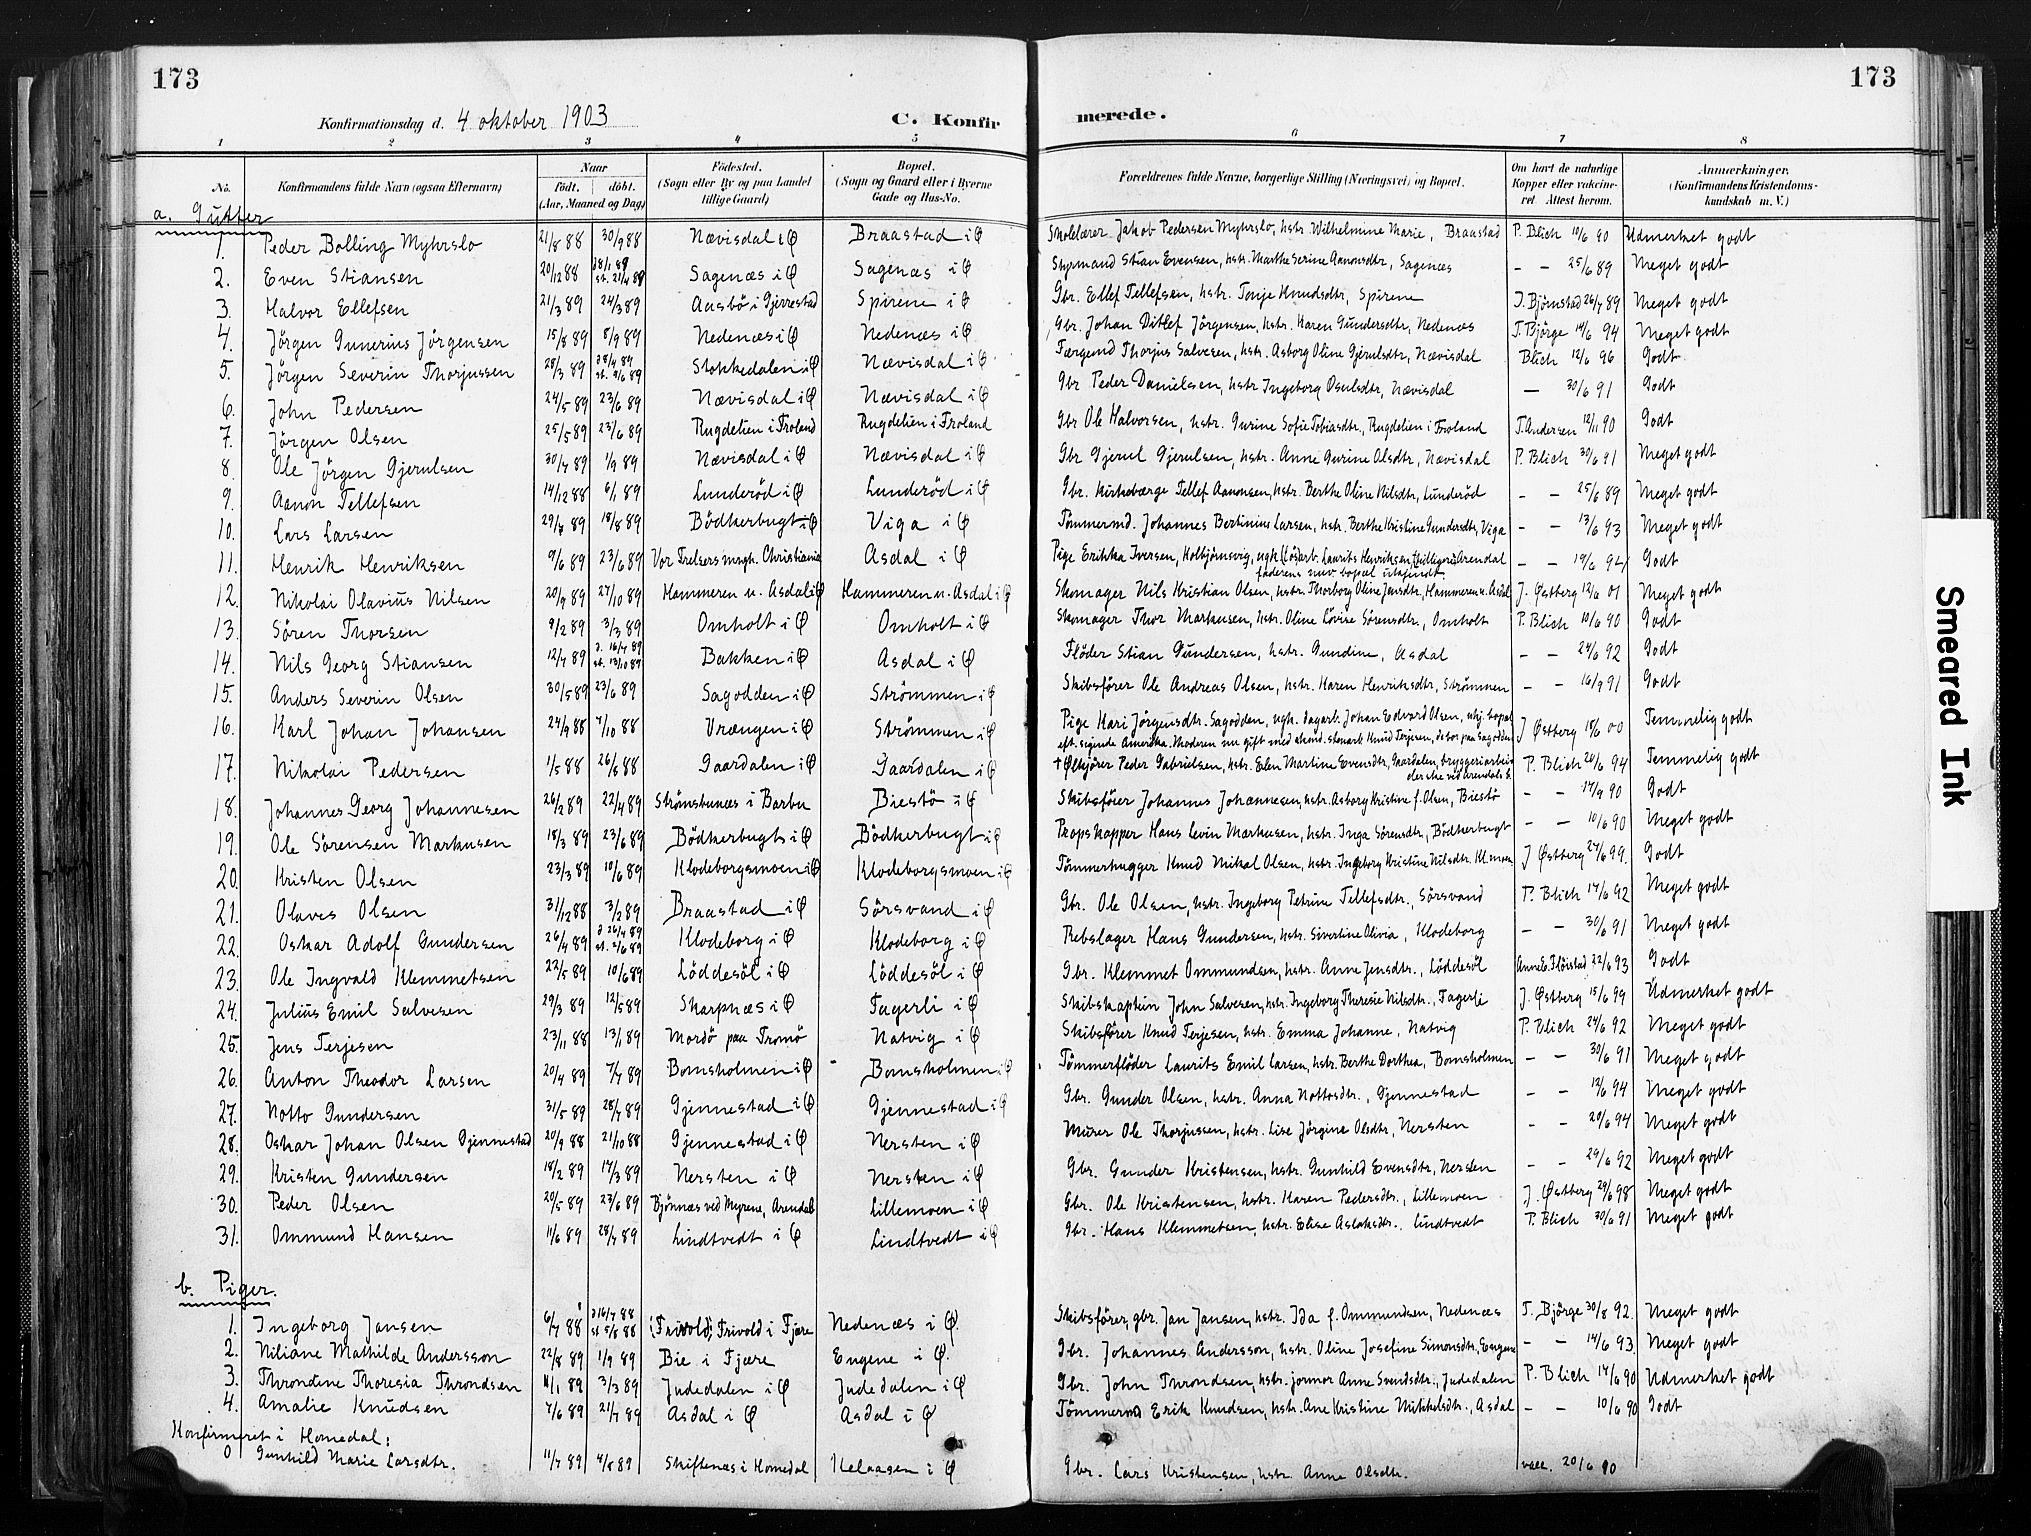 173
173
Konfirmationsdag d. 4 oktober 1903
C. Konfirmerede.
1 2 3 4 5 6 7 8
No. Konfirmandens fulde Navn (ogsaa Efternavn) Naar födt. döbt. (Aar, Maaned og Dag) Födested. (Sogn eller By og paa Landet tillige Gaard) Bopæl. (Sogn og Gaard eller i Byerne Gade og Hus-No. Forældrenes fulde Navne, borgerlige Stilling (Næringsvei) og Bopæl. Om havt de naturlige Kopper eller vaccineret. Attest herom. Anmærkninger. (Konfirmandens Kristendomskundskab m. V.)
a. Gutter
1. Peder Bolling Myhrslo 21/8 88 30/9 88 Nævisdal i Ø Braastad i Ø Skolelærer Jakob Pedersen Myhrslo, hstr. Wilhelmine Marie, Braastad P. Blich 10/6 90 Udmerket godt
2. Even Stiansen 20/12 88 28/1 89 st. 21/4 89 Sagenæs i Ø Sagenæs i Ø Styrmand Stian Evensen, hstr. Marthe Serine Aanonsdtr, Sagenæs – – 25/6 89 Meget godt
3. Halvor Ellefsen 21/3 89 24/3 89 Aasbö i Gjerrestad Spirene i Ø Gbr. Ellef Tellefsen, hstr. Tonje Knudsdtr, Spirene J. Bjørnstad 26/7 89 Meget godt
4. Jörgen Gunerius Jörgensen 15/8 89 8/9 89 Nedenæs i Ø Nedenæs i Ø Gbr. Johan Ditlef Jörgensen, hstr. Karen Gundersdtr, Nedenæs T. Bjørge 19/6 94 Meget godt
5. Jörgen Severin Thorjussen 28/3 89 d 28/4 89 st. 9/6 89 Stokkedalen i Ø Nævisdal i Ø Færgemd Thorjus Salvesen, hstr. Asborg Oline Gjerulsdtr, Nævisdal Blich 12/6 96 Godt
6. John Pedersen 24/5 89 23/6 89 Nævisdal i Ø Nævisdal i Ø Gbr Peder Danielsen, hstr Ingeborg Osulsdtr, Nævisdal – 30/6 91 Godt
7. Jörgen Olsen 25/5 89 23/6 89 Rugdelien i Froland Rugdelien i Froland Gbr Ole Halvorsen, hstr. Gurine Sofie Tobiasdtr., Rugdelien i Froland T. Andersen 12/11 90 Godt
8. Ole Jörgen Gjerulsen 30/7 89 1/9 89 Nævisdal i Ø Nævisdal i Ø Gbr Gjerul Gjerulsen, hstr. Anne Gurine Olsdtr, Nævisdal P. Blich 30/6 91 Meget godt
9. Aanon Tellefsen 14/12 88 6/1 89 Lunderöd i Ø Lunderöd i Ø Gbr. Kirkeværge Tellef Aanonsen, hstr. Berthe Oline Nilsdtr, Lunderöd – – 25/6 89 Meget godt
10. Lars Larsen 29/7 89 18/8 89 Bödkerbugt i Ø Viga i Ø Tömmermd. Johannes Bertinius Larsen, hstr. Berthe Kristine Gundersdtr, Viga – – 13/6 93 Meget godt
11. Henrik Henriksen 9/6 89 23/6 89 Vor Frelsers mngh. Christiania Asdal i Ø Pige Erikka Iversen, Kolbjørnsvig, ugh. Lösarb. Laurits Henriksen, tidligere Arendal faderens nuv. bopæl ubekjendt – – 19/6 94 Godt
12. Nikolai Olavius Nilsen 20/9 89 27/10 89 Hammeren u. Asdal i Ø Hammeren u. Asdal i Ø Skomager Nils Kristian Olsen, hstr. Thorborg Oline Jensdtr, Hammeren u. Asdal J. Østberg 12/6 01 Meget godt
13. Sören Thorsen 9/2 89 3/3 89 Omholt i Ø Omholt i Ø Skomager Thor Markusen, hstr. Oline Lovise Sörensdtr, Omholt P. Blich 10/6 90 Godt
14. Nils Georg Stiansen 12/7 89 d. 16/7 89 st. 13/10 89 Bakken i Ø Asdal i Ø Flöder Stian Gundersen, hstr. Gundine, Asdal – – 24/6 92 Godt
15. Anders Severin Olsen 30/5 89 23/6 89 Sagodden i Ø Strömmen i Ø Skibsförer Ole Andreas Olsen, hstr. Karen Henriksdtr, Strömmen – – 16/9 91 Godt
16. Karl Johan Johansen 24/9 88 7/10 88 Vrængen i Ø Strömmen i Ø Pige Kari Jörgensdtr. Sagodden, ugh. dagarb. Johan Edvard Olsen, ukj. bopæl eft. sigende Amerika. Moderen nu gift med Knud Terjesen, de bor paa Sagodden J Østberg 18/6 00 Temmelig godt
17. Nikolai Pedersen 1/5 88 26/8 88 Gaardalen i Ø Gaardalen i Ø † Ølkjører Peder Gabrielsen, hstr. Elen Martine Evensdtr, Gaardalen, bryggeriarbeider P. Blich 20/6 94 Temmelig godt
18. Johannes Georg Johannesen 26/2 89 22/4 89 Strömsbunæs i Barbu Biestö i Ø Skibsförer Johannes Johannesen, hstr. Asborg Kristine f. Olsen, Biestö – – 17/9 90 Godt
19. Ole Sörensen Markusen 18/3 89 23/6 89 Bödkerbugt i Ø Bödkerbugt i Ø Propskapper Hans Levin Markusen, hstr. Inga Sörensdtr, Bödkerbugt – – 10/6 90 Meget godt
20. Kristen Olsen 23/3 89 10/6 89 Klodeborgsmoen i Ø Klodeborgsmoen i Ø Tömmerhugger Knud Mikal Olsen, hstr. Ingeborg Kristine Nilsdtr. Kl.moen J Østberg 24/6 99. Godt
21. Olaves Olsen 31/12 88 3/2 89 Braastad i Ø Sörsvand i Ø Gbr. Ole Olsen, hstr. Ingeborg Petrine Tellefsdtr., Sörsvand P. Blich 14/6 92 Meget godt
22. Oskar Adolf Gundersen 26/4 89 d 26/4 89 st. 2/6 89 Klodeborg i Ø Klodeborg i Ø Rebslager Hans Gundersen, hstr. Sivertine Olivia, Klodeborg – – 30/6 91 Meget godt
23. Ole Ingvald Klemmetsen 22/5 89 10/6 89 Löddesöl i Ø Löddesöl i Ø Gbr. Klemmet Ommundsen, hstr. Anne Jensdtr., Löddesöl Anne E. Fløistad 22/6 93 Godt
24. Julius Emil Salvesen 29/3 89 12/5 89 Skarpnæs i Ø Fagerli i Ø Skibskaptein John Salvesen, hstr. Ingeborg Theresie Nilsdtr., Fagerli J. Østberg 15/6 99 Udmerket godt
25. Jens Terjesen 23/11 88 13/1 89 Mærdö paa Tromö Natvig i Ø Skibsförer Knud Terjesen, hstr. Emma Johanne, Natvig P. Blich 24/6 92 Meget godt
26. Anton Theodor Larsen 20/4 89 7/7 89 Bomsholmen i Ø Bomsholmen i Ø Tömmerflöder Laurits Emil Larsen, hstr. Berthe Dorthea, Bomsholmen – – 30/6 91 Meget godt
27. Notto Gundersen 31/5 89 28/7 89 Gjennestad i Ø Gjennestad i Ø Gbr. Gunder Olsen, hstr. Anna Nottosdtr., Gjennestad – – 12/6 94 Meget godt
28. Oskar Johan Olsen Gjennestad 20/9 88 21/10 88 Gjennestad i Ø Nersten i Ø Murer Ole Thorjussen, hstr. Lise Jörgine Olsdtr, Nersten – – 20/6 94 Meget godt
29. Kristen Gundersen 18/2 89 17/3 89 Nersten i Ø Nersten i Ø Gbr. Gunder Kristensen, hstr. Gunhild Evensdtr, Nersten – – 29/6 92 Meget godt
30. Peder Olsen 20/5 89 23/6 89 Bjönnes ved Myrene, Arendal Lillemoen i Ø Gbr. Ole Kristensen, hstr. Karen Pedersdtr., Lillemoen J. Østberg 29/6 98 Meget godt
31. Ommund Hansen 11/6 89 28/7 89 Lindtvedt i Ø Lindtvedt i Ø Gbr. Hans Klemmetsen, hstr. Elise Aslaksdtr. Lindtvedt P. Blich 30/6 91 Meget godt
b. Piger.
1. Ingeborg Jansen 6/7 88 d 16/7 88 st 5/8 88 Frivold i Fjære Nedenæs i Ø. Skibsförer, gbr. Jan Jansen, hstr. Ida f. Ommundsen, Nedenæs T. Bjørge 30/8 92. Meget godt
2. Niliane Mathilde Andersson 22/8 89 1/9 89 Bie i Fjære Engene i Ø. Gbr. Johannes Andersson, hstr. Oline Josefine Simonsdtr, Engene – – 14/6 93. Meget godt
3. Throndine Thoresia Throndsen 11/1 89 3/3 89 Judedalen i Ø Judedalen i Ø Gbr. John Throndsen, hstr. jormor Anne Svendsdtr., Judedalen P. Blich 17/6 90 Udmerket godt
4. Amalie Knudsen 7/6 89 21/7 89 Asdal i Ø Asdal i Ø Tömmermd Erik Knudsen, hstr. Ane Kristine Mikkelsdtr., Asdal – – 10/6 90 Godt
Konfirmeret i Homedal:
0 Gunhild Marie Larsdtr. 11/7 89 4/8 89 Skiftenæs i Homedal Helaasen i Ø Gbr. Lars Kristensen, hstr. Anne Olsdtr. vacc. 20/6 90
Smeared Ink